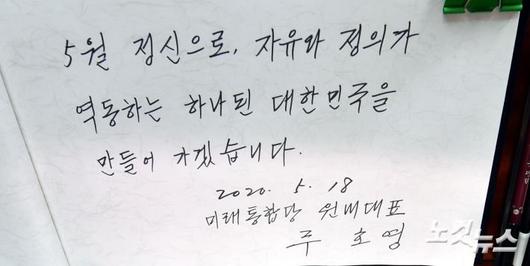 5월 정신으로, 자유와 정의가
역동하는 하나된 대한민국을
만들어 가겠습니다.
2020. 5. 18
미래통합당 원내대표
주 호 영
노컷뉴스